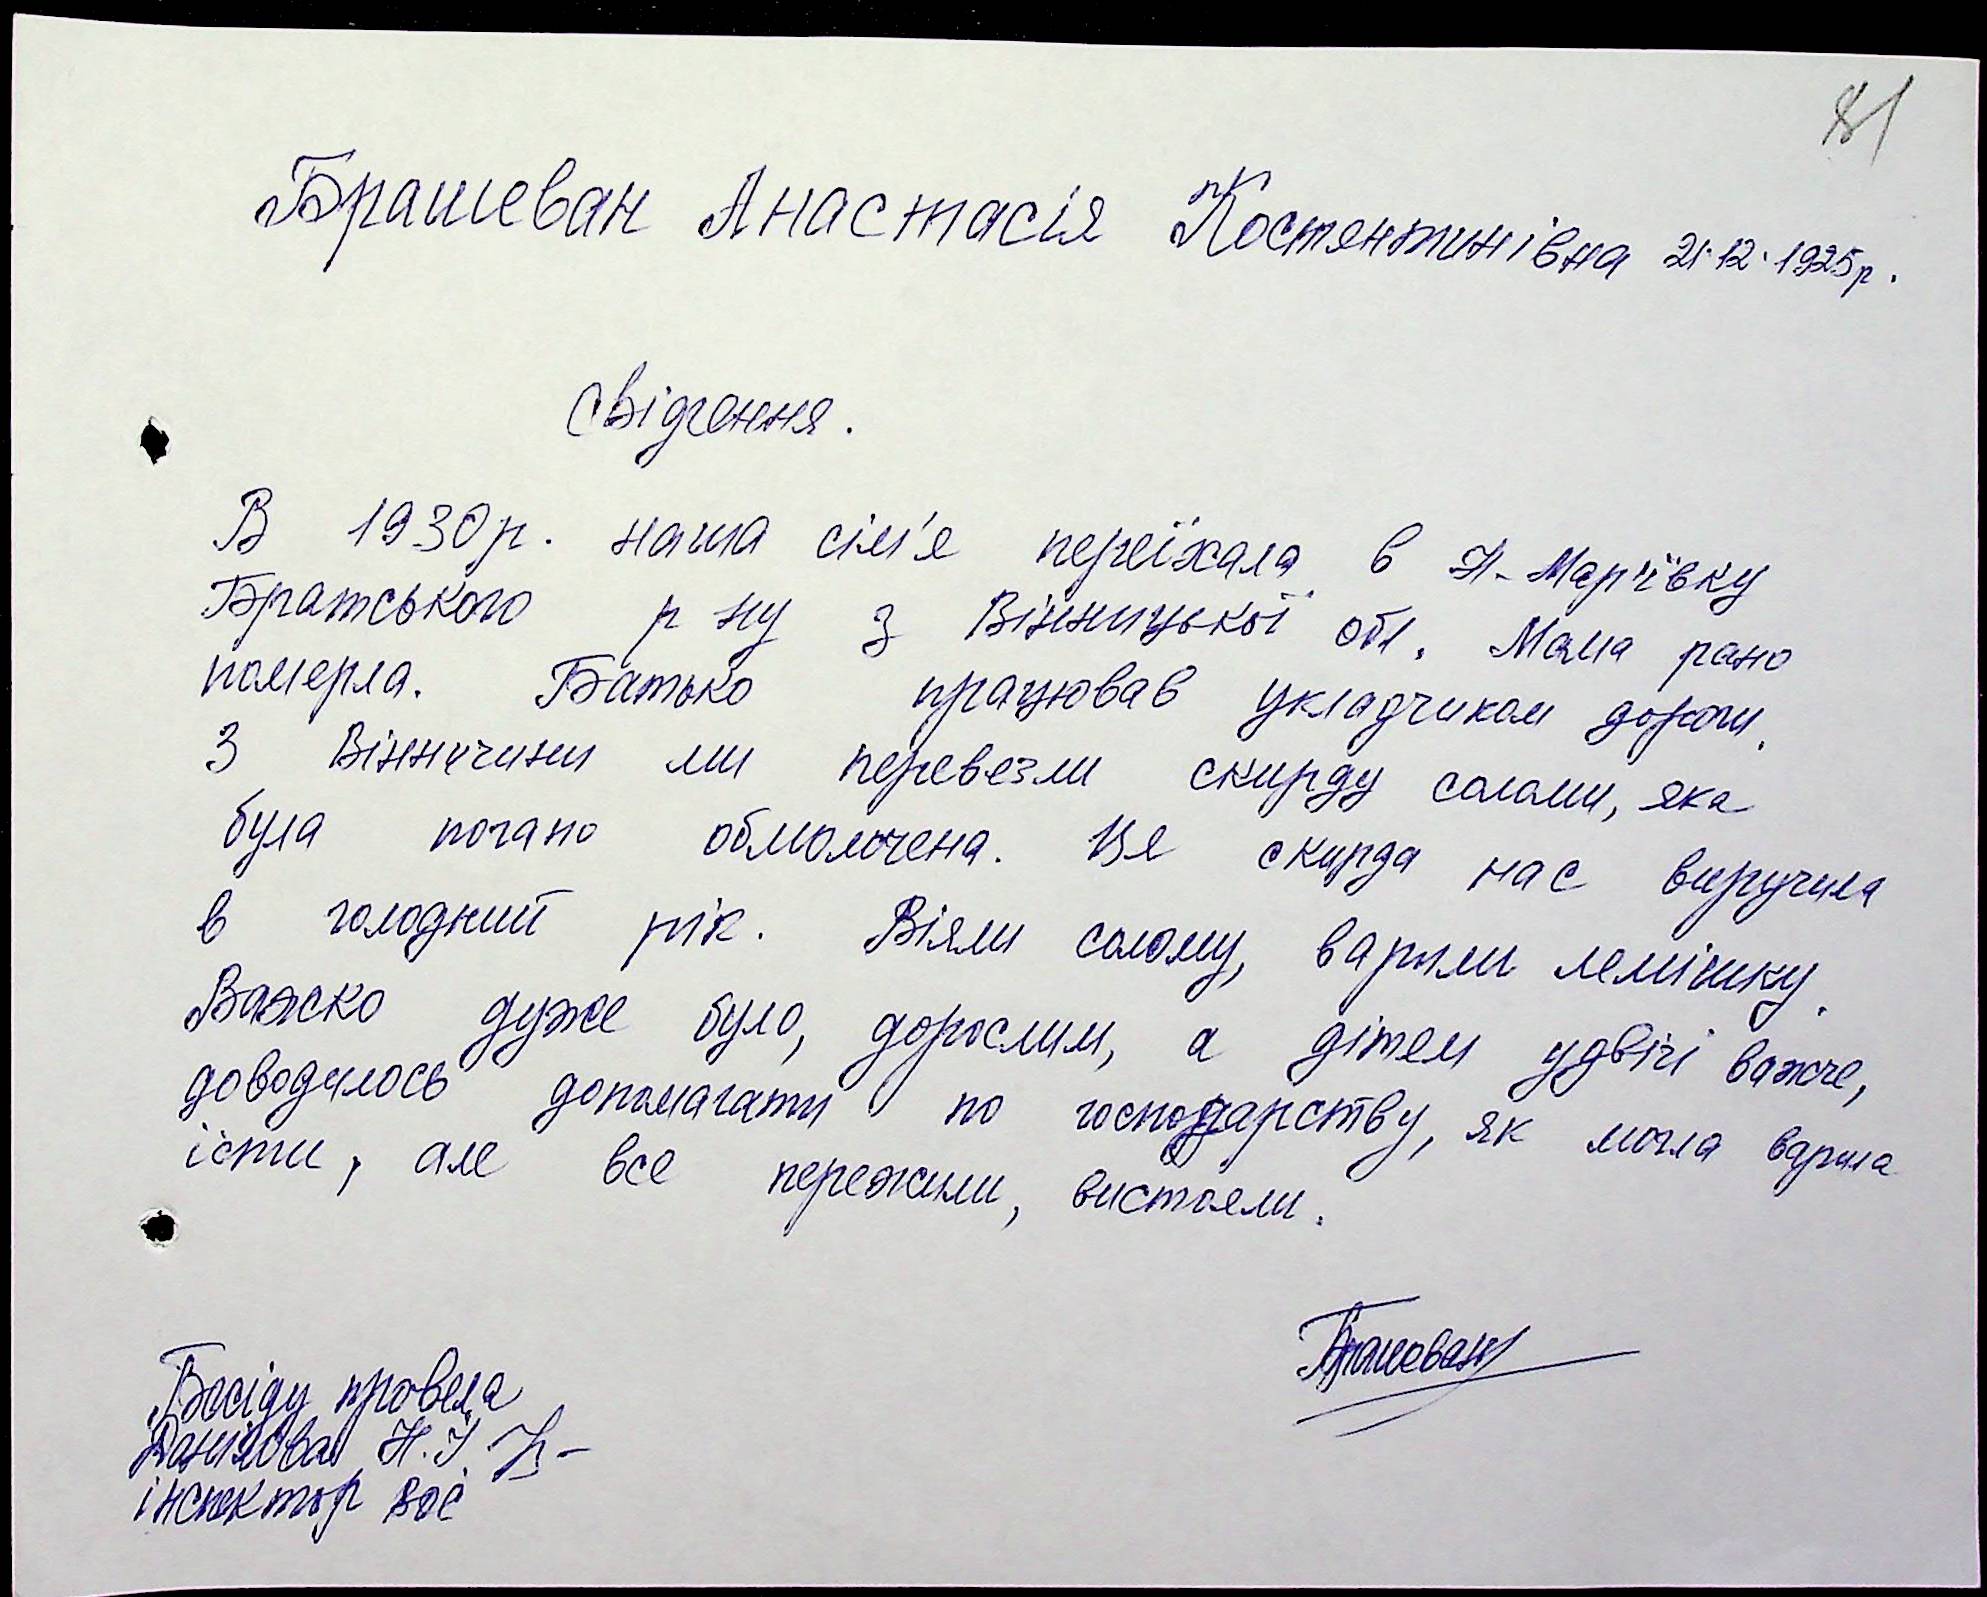 81
Брашеван Анастасія Костянтинівна 21.12.1925р.
Свідчення.
В 1930р. наша сім'я переїхала в Н-Мар'ївку
Братського р ну з Вінницької обл. Мама рано
померла. Батько працював укладчиком дороги.
З Вінничини ми перевезли скирду соломи, яка
була погано обмолочена. Ця скирда нас виручила
в голодний рік. Віяли солому, варили лемішку.
Важко дуже було, дорослим, а дітем удвічі важче,
доводилось допомагати по господарству, як могла варила
їсти, але все пережили, вистояли.
Брашеван
Бесіду провела
Данілова Н.І.
інспектор